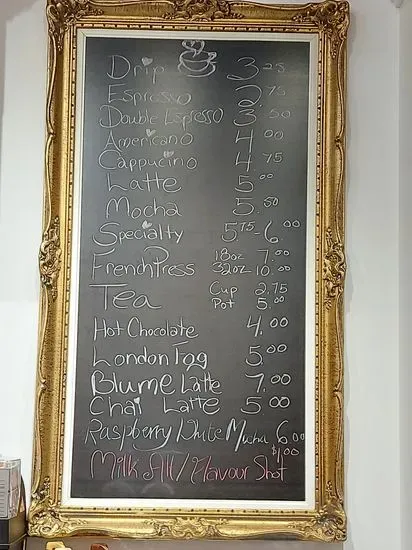 Drip 3.25
Espresso 2.75
Double Espresso 3.50
Americano 4.00
Cappucino 4.75
Latte 5.00
Mocha 5.50
Specialty 5.75-6.00
French Press 18oz 7.00
32oz 10.00
Tea Cup 2.75
Pot 5.00
Hot Chocolate 4.00
London Fog 5.00
Blume Latte 7.00
Chai Latte 5.00
Raspberry White Mocha 6.00
Milk Alt/Flavour Shot $1.00